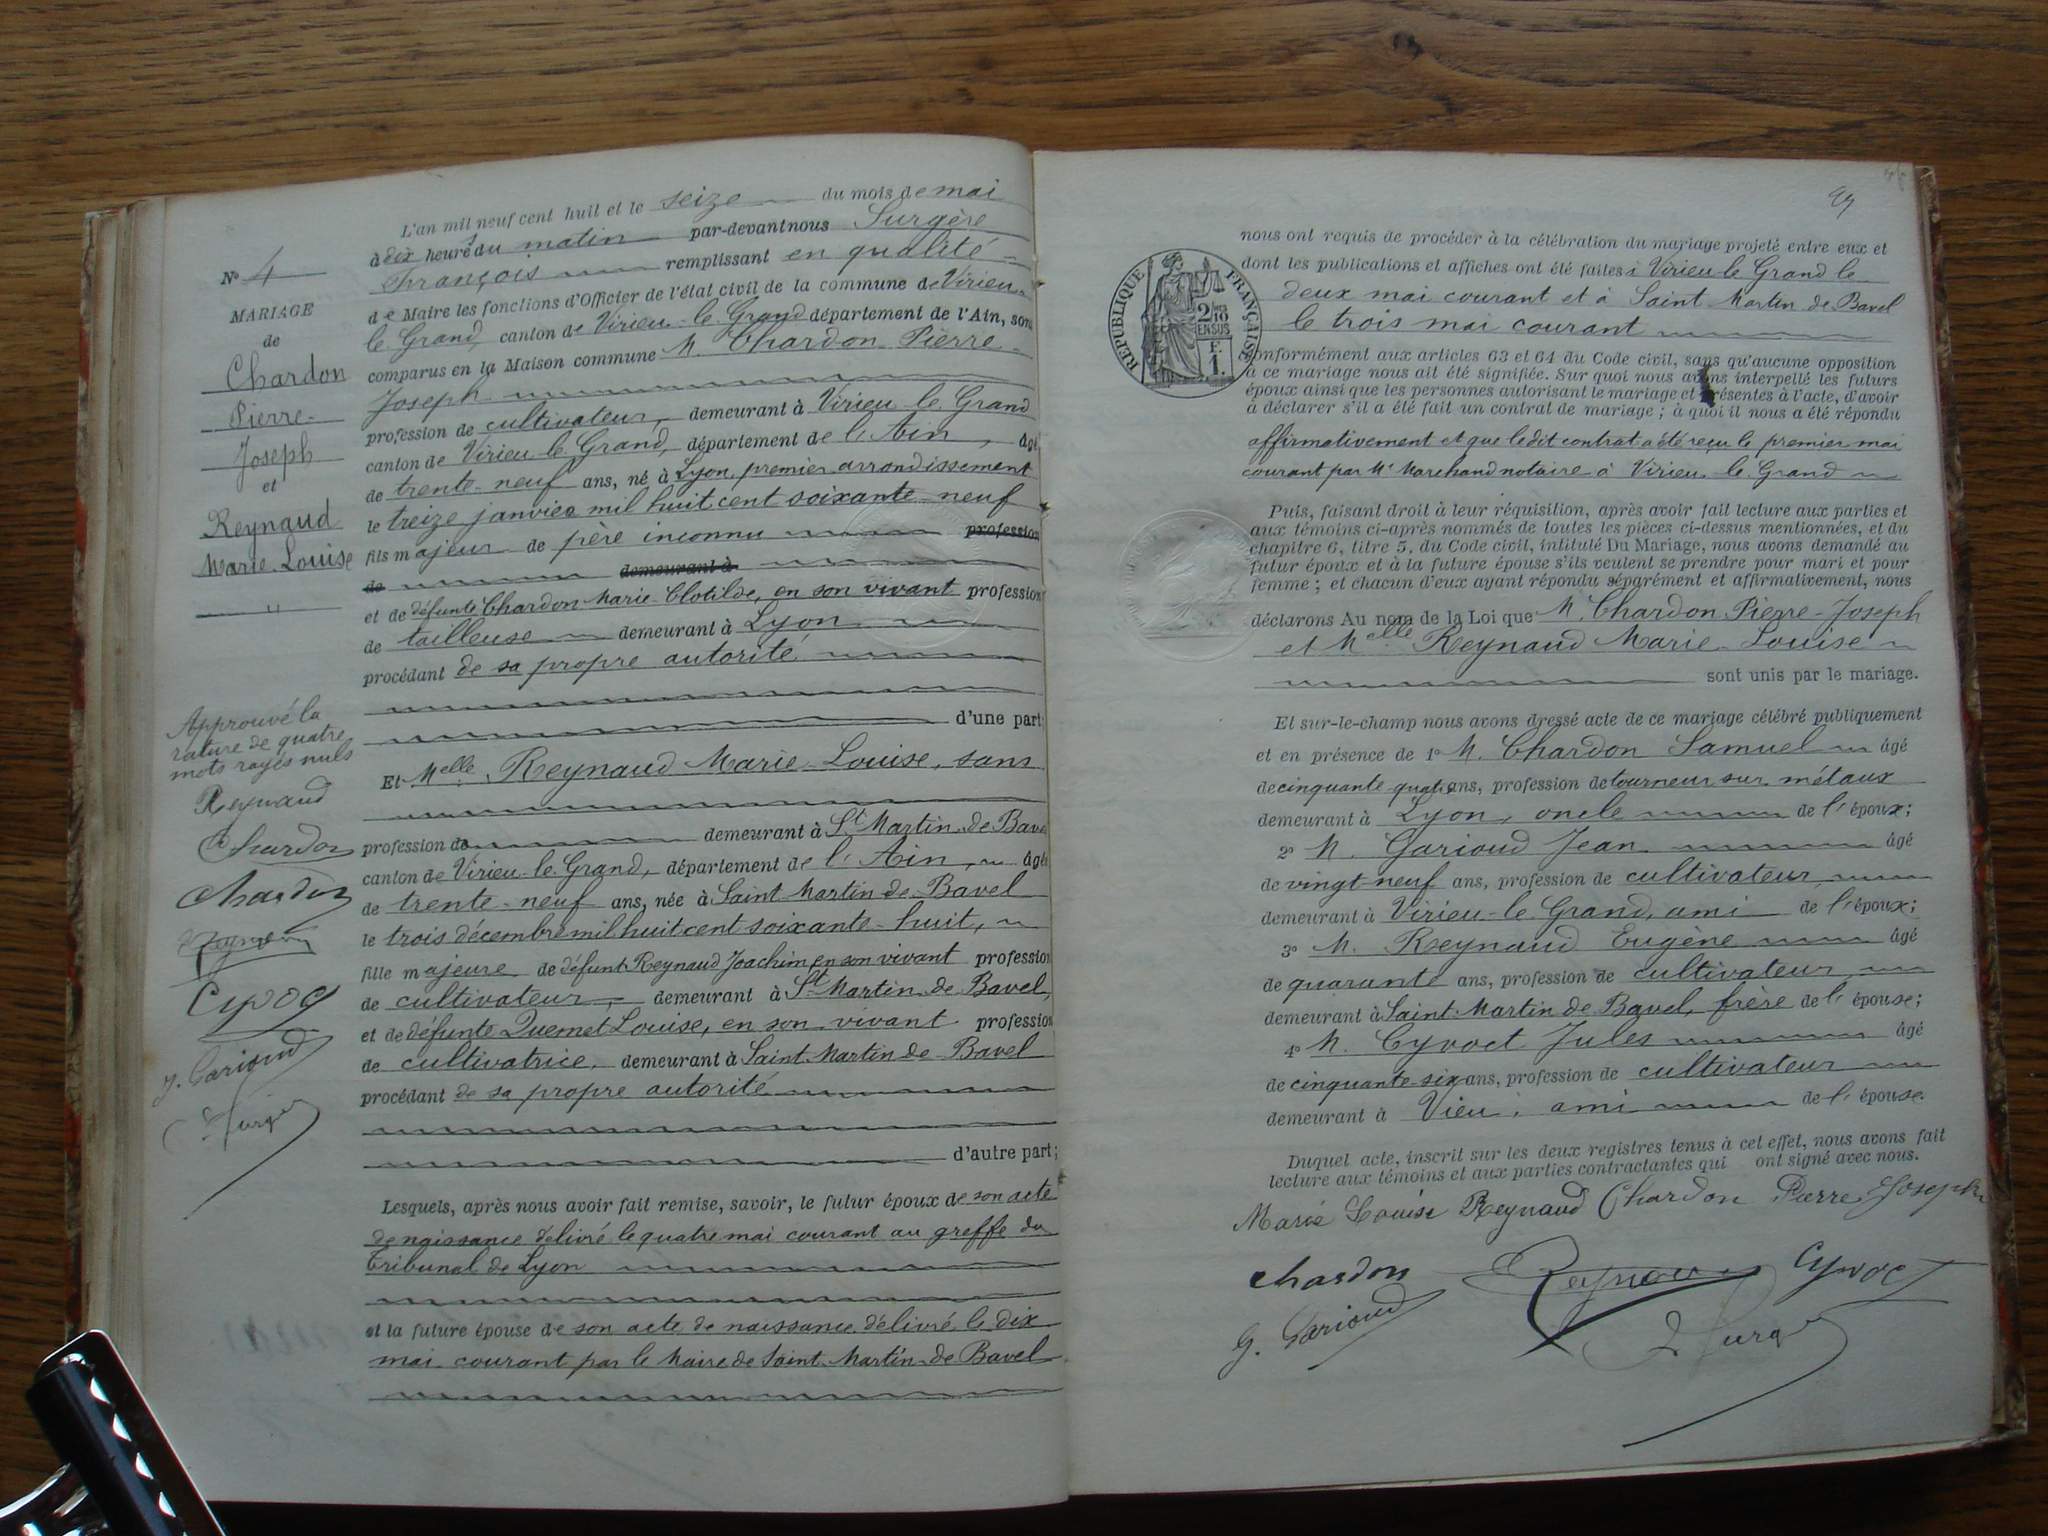 L'an mil neuf cent huit et le seize du mois de mai
à dix heures du matin par-devant nous Surgère
François remplissant en qualité
de Maire les fonctions d'Officier de l'état civil de la commune de Virieu-
le Grand, canton de Virieu-le-Grand département de l'Ain, sont
comparus en la Maison commune M. Chardon Pierre-
Joseph
profession de cultivateur, demeurant à Virieu-le-Grand
canton de Virieu-le-Grand, département de l'Ain, âgé
de trente-neuf ans, né à Lyon, premier arrondissement
le treize janvier mil huit cent soixante-neuf
fils majeur de père inconnu profession
de demeurant à
et de défunte Chardon Marie-Clotilde, en son vivant profession
de tailleuse demeurant à Lyon
procédant de sa propre autorité
d'une part;
Et Melle Reynaud Marie-Louise, sans
profession de demeurant à St Martin-de-Bavel
canton de Virieu-le-Grand, département de l'Ain, âgée
de trente-neuf ans, née à Saint Martin de Bavel
le trois décembre mil huit cent soixante-huit,
fille majeure de défunt Reynaud Joachim, en son vivant profession
de cultivateur, demeurant à St Martin de Bavel,
et de défunte Quemet Louise, en son vivant profession
de cultivatrice, demeurant à Saint Martin de Bavel
procédant de sa propre autorité
d'autre part;
Lesquels, après nous avoir fait remise, savoir, le futur époux de son acte
de naissance délivré le quatre mai courant au greffe du
tribunal de Lyon
et la future épouse de son acte de naissance délivré le dix
mai courant par le Maire de Saint-Martin-de-Bavel
No 4
MARIAGE
de
Chardon
Pierre-
Joseph
et
Reynaud
Marie-Louise
Approuvé la
rature de quatre
mots rayés nuls
Reynaud
Chardon
Chardon
Reynaud
Cyvoct
J. Garioud
Surgère
nous ont requis de procéder à la célébration du mariage projeté entre eux et
dont les publications et affiches ont été faites à Virieu-le-Grand le
deux mai courant et à Saint Martin de Bavel
le trois mai courant
RÉPUBLIQUE FRANÇAISE
2/10
EN SUS
F.
1.
conformément aux articles 63 et 64 du Code civil, sans qu'aucune opposition
à ce mariage nous ait été signifiée. Sur quoi nous avons interpellé les futurs
époux ainsi que les personnes autorisant le mariage et présentes à l'acte, d'avoir
à déclarer s'il a été fait un contrat de mariage; à quoi il nous a été répondu
affirmativement et que ledit contrat a été reçu le premier mai
courant par Me Marchand notaire à Virieu-le-Grand
Puis, faisant droit à leur réquisition, après avoir fait lecture aux parties et
aux témoins ci-après nommés de toutes les pièces ci-dessus mentionnées, et du
chapitre 6, titre 5, du Code civil, intitulé Du Mariage, nous avons demandé au
futur époux et à la future épouse s'ils veulent se prendre pour mari et pour
femme; et chacun d'eux ayant répondu séparément et affirmativement, nous
déclarons Au nom de la Loi que M. Chardon Pierre-Joseph
et Melle Reynaud Marie-Louise
sont unis par le mariage.
Et sur-le-champ nous avons dressé acte de ce mariage célébré publiquement
et en présence de 1o M. Chardon Samuel âgé
de cinquante quatre ans, profession de tourneur sur métaux
demeurant à Lyon, oncle de l'époux;
2o M. Garioud Jean âgé
de vingt-neuf ans, profession de cultivateur
demeurant à Virieu-le-Grand, ami de l'époux;
3o M. Reynaud Eugène âgé
de quarante ans, profession de cultivateur
demeurant à Saint-Martin de Bavel, frère de l'épouse;
4o M. Cyvoct Jules âgé
de cinquante-six ans, profession de cultivateur
demeurant à Vieu, ami de l'épouse.
Duquel acte, inscrit sur les deux registres tenus à cet effet, nous avons fait
lecture aux témoins et aux parties contractantes qui ont signé avec nous.
Marie Louise Reynaud Chardon Pierre Joseph
Chardon Reynaud Cyvoct
J. Garioud Surgère